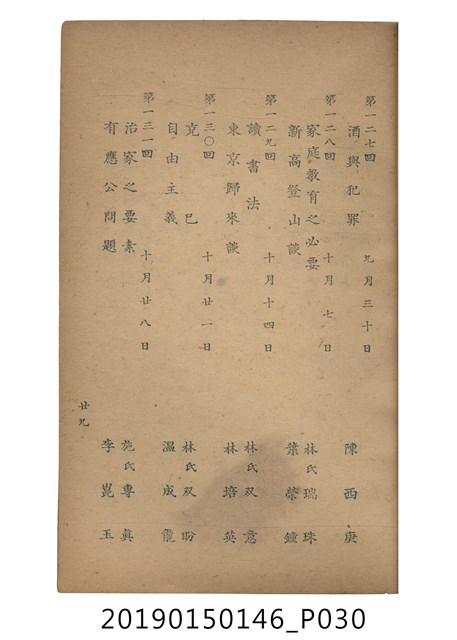 第一二七回　九月三十日
酒與犯罪　陳西庚
第一二八回　十月七日
家庭教育之必要　林氏瑞珠
新高登山談　葉榮鐘
第一二九回　十月十四日
讀書法　林氏双意
東京歸來談　林培英
第一三〇回　十月廿一日
克己　林氏双盼
自由主義　溫成龍
第一三一回　十月廿八日
治家之要素　施氏專真
有應公問題　李崑玉
廿九
20190150146_P030